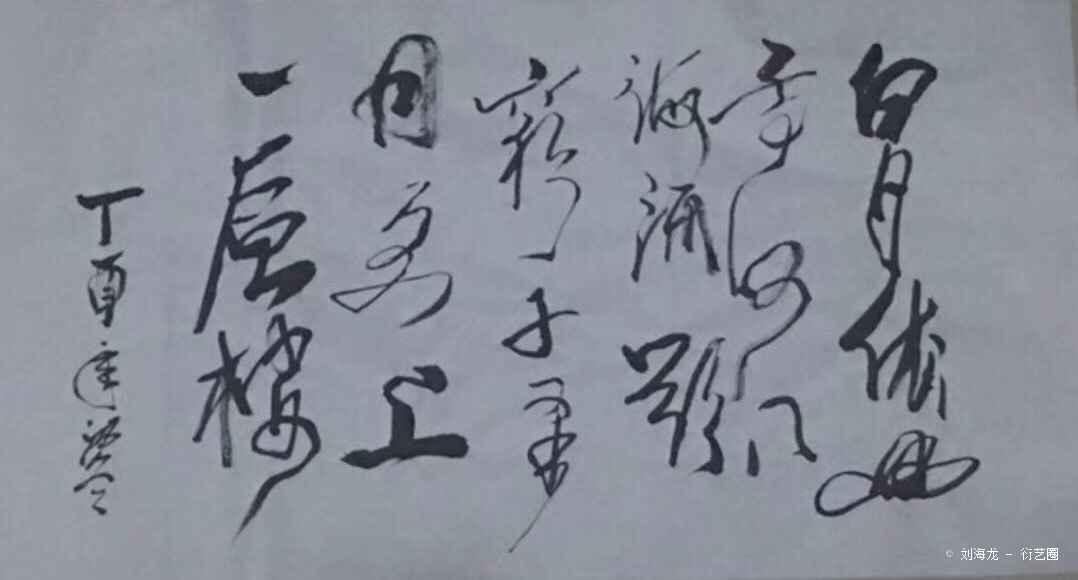 白日依山
黄河入
海流欲
窮千里
目更上
一層樓
丁酉年
© 刘海龙 - 衍艺圈